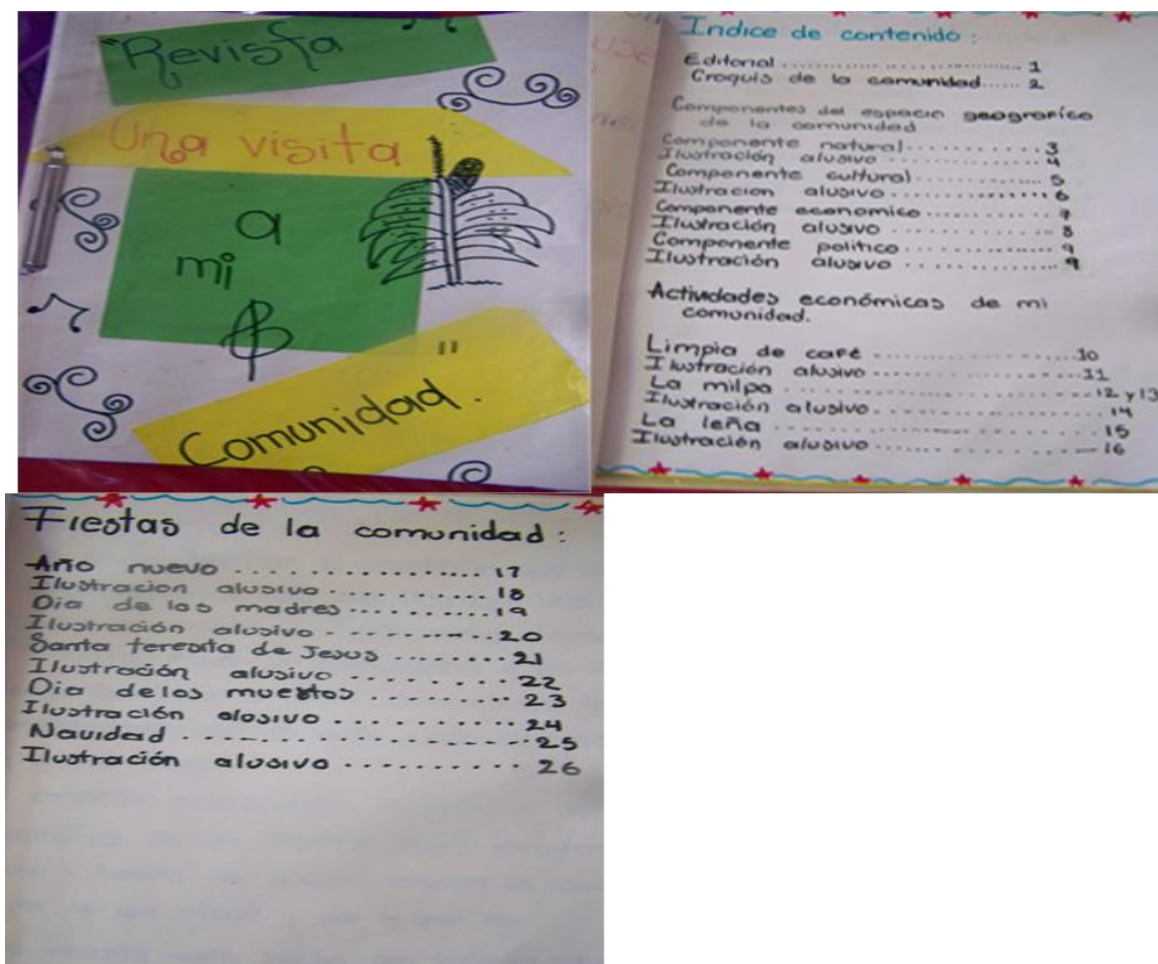 "Revista
Una visita
a
mi
Comunidad."
Indice de contenido:
Editorial .............................. 1
Croquis de la comunidad...... 2
Componentes del espacio geografico
de la comunidad
Componente natural........... 3
Ilustración alusivo ............... 4
Componente cultural ............ 5
Ilustracion alusivo .............. 6
Componente economico ........... 7
Ilustración alusivo ............. 8
Componente politico ............ 9
Ilustración alusivo .............. 9
Actividades económicas de mi
comunidad.
Limpia de café ....................10
Ilustración alusivo ....................11
La milpa .......................12 y 13
Ilustración alusivo ....................14
La leña ....................15
Ilustración alusivo ....................16
Fiestas de la comunidad:
Año nuevo ................. 17
Ilustracion alusivo ........... 18
Dia de las madres ........... 19
Ilustración alusivo ........... 20
Santa teresita de Jesus ........ 21
Ilustración alusivo ......... 22
Dia delos muertos ......... 23
Ilustración alosivo .......... 24
Navidad ....................25
Ilustración alusivo .......... 26